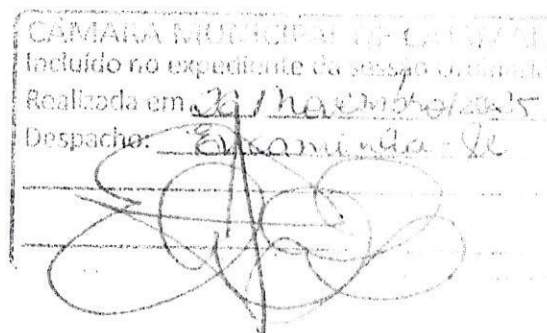 CÂMARA MUNICIPAL DE
Incluído no expediente da sessão ordinária
Realizada em 26 / novembro / 2025
Despacho: Encaminha-se